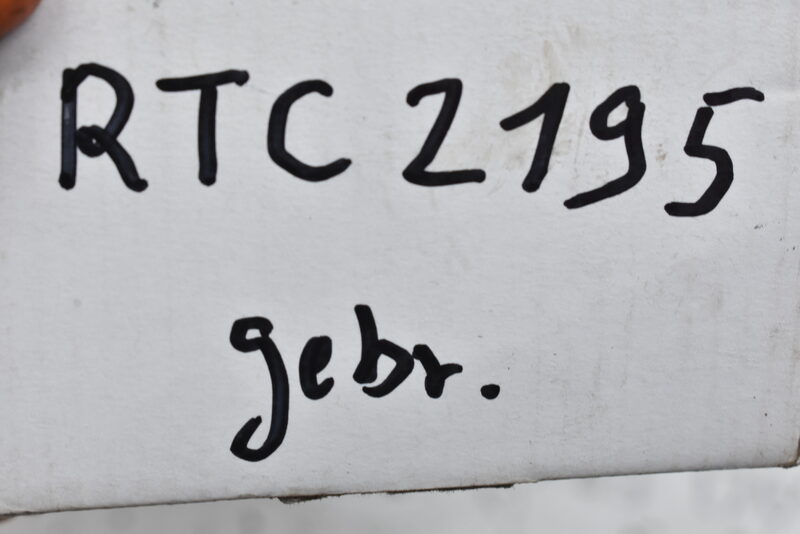 RTC 2195
gebr.